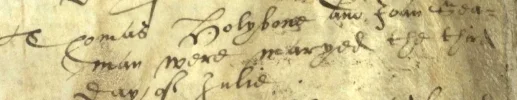 Thomas Holybone and Joan Sea-
man were maryed the third
day of Julie